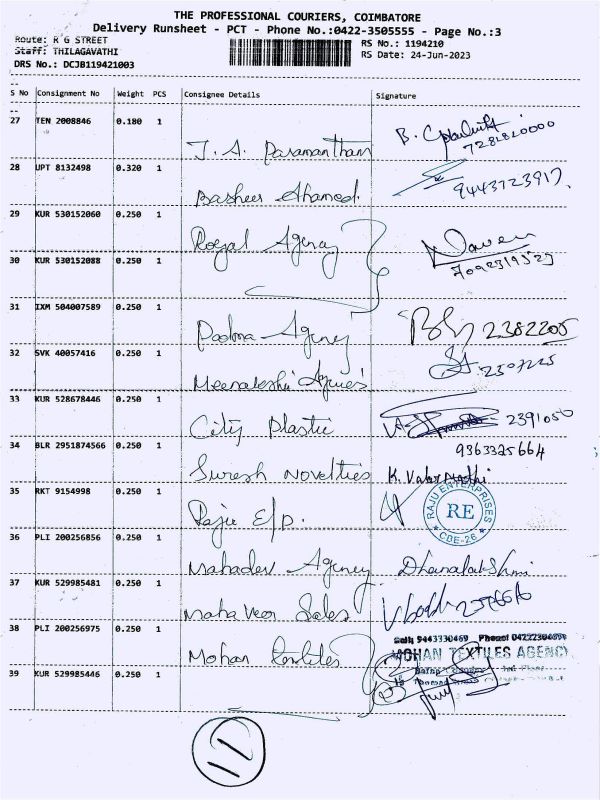 THE PROFESSIONAL COURIERS, COIMBATORE
Delivery Runsheet - PCT - Phone No.:0422-3505555 - Page No.:3
Route: R G STREET
RS No.: 1194210
Staff: THILAGAVATHI
RS Date: 24-Jun-2023
DRS No.: DCJB119421003
S No Consignment No Weight PCS Consignee Details Signature
27 TEN 2008846 0.180 1
J. A. Paramantham B.
7281820000
28 UPT 8132498 0.320 1
Basheer Ahamed. 9443723917.
29 KUR 530152060 0.250 1
Royal Agency Naveen
7092319529
30 KUR 530152088 0.250 1
31 IXM 504007589 0.250 1
Padma Agency 2382205
32 SVK 40057416 0.250 1
Meenaloshi Agencies 2307225
33 KUR 528678446 0.250 1
City Plastic 2391050
34 BLR 2951874566 0.250 1
9363325664
Suresh Novelties K.
35 RKT 9154998 0.250 1
Raju E/p. RAJU ENTERPRISES
RE
CBE-26
36 PLI 200256856 0.250 1
Mahadev Agency Dhanalakshmi
37 KUR 529985481 0.250 1
Mahaveer Sales
38 PLI 200256975 0.250 1
Cell: 9443330469 Phone:
Mohan Textiles MOHAN TEXTILES AGENCY
39 KUR 529985446 0.250 1
11